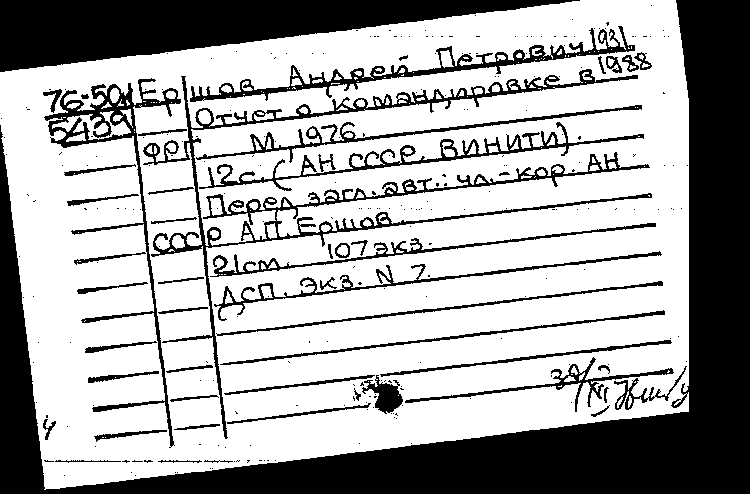 76-50/ Ершов, Андрей Петрович 1931
5439 Отчет о командировке в 1988
ФРГ. М., 1976.
12с. (АН СССР. ВИНИТИ).
Перед загл. авт.: чл.-кор. АН
СССР А.П. Ершов.
21см. 107экз.
ДСП. Экз. N 7.
XI
4